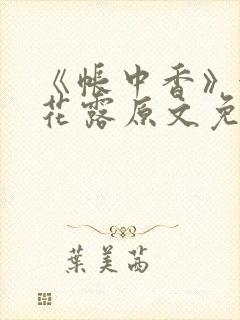 《帐中香》
花露原文免
葉美茜